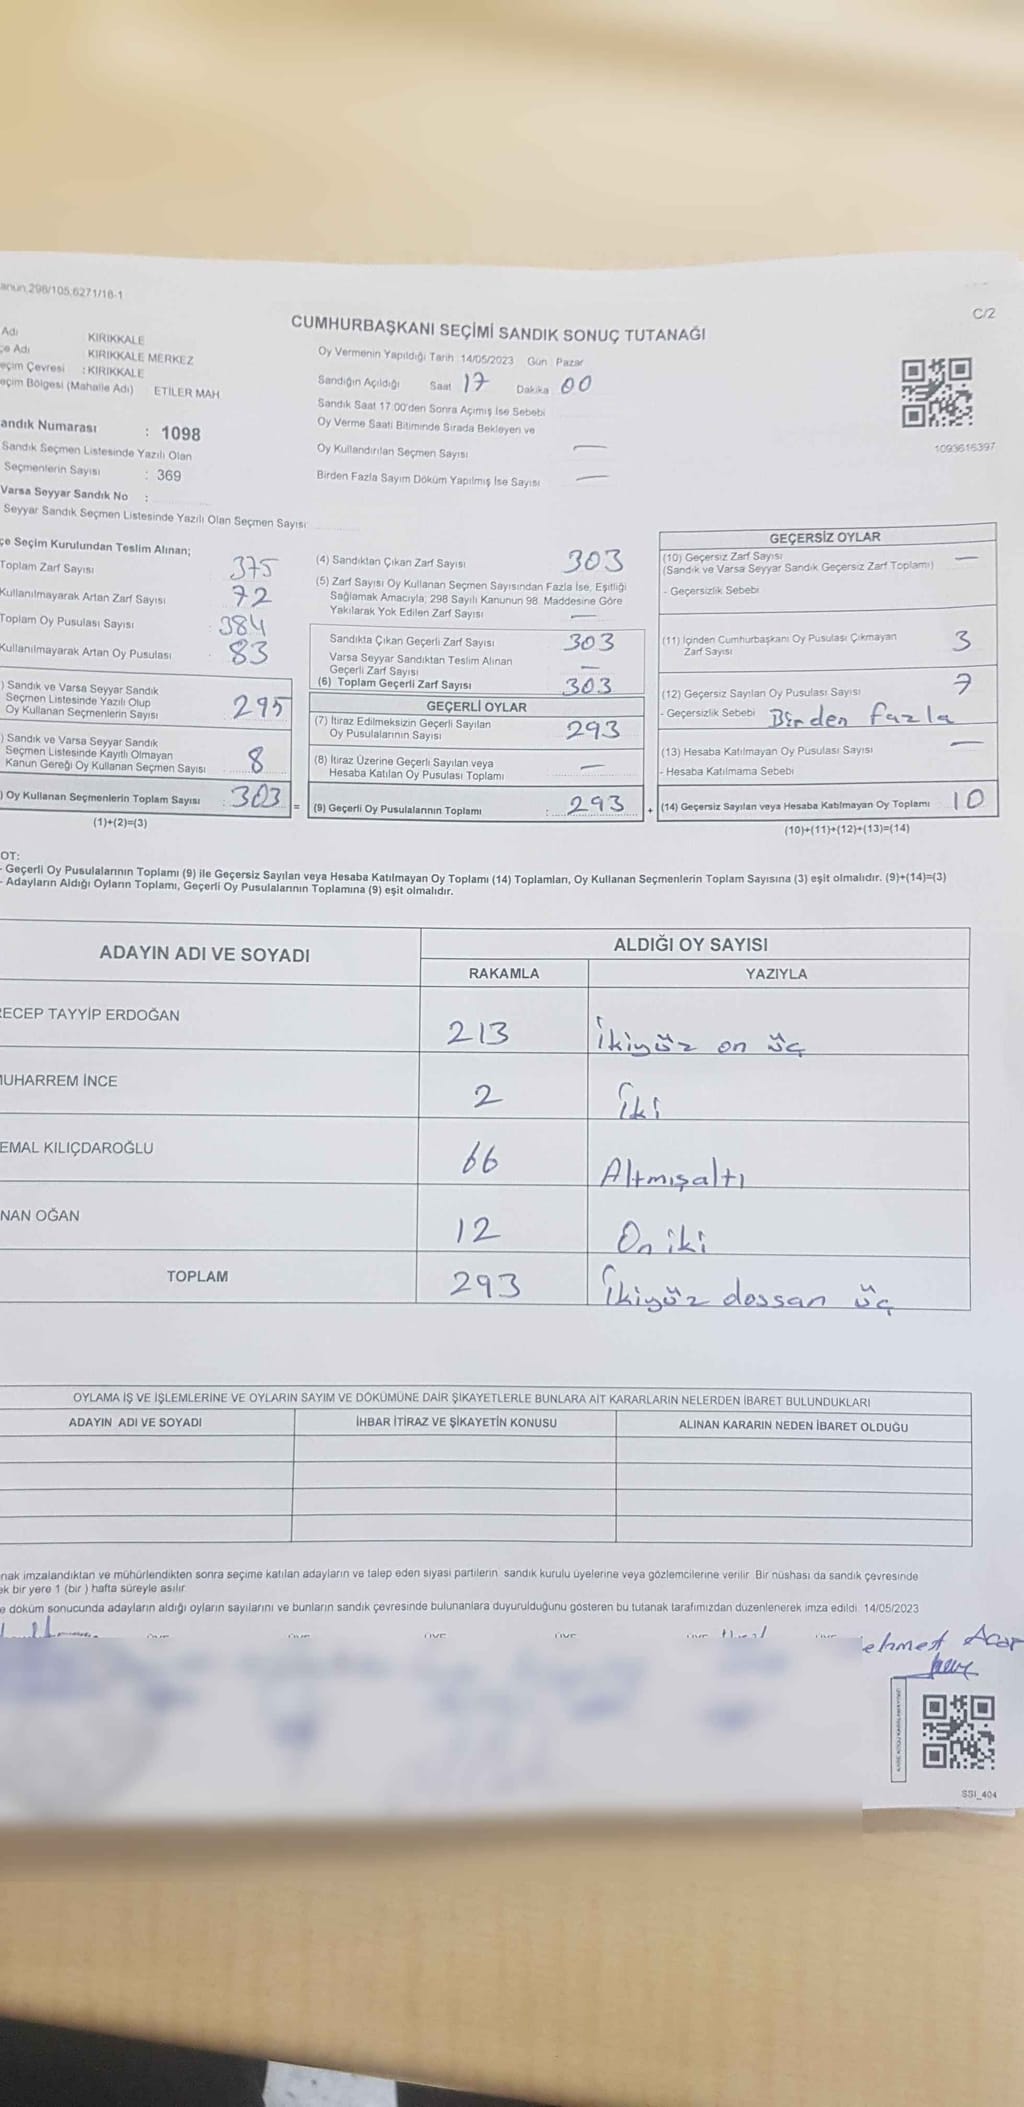 anun,298/105,6271/16-1
C/2
CUMHURBAŞKANI SEÇİMİ SANDIK SONUÇ TUTANAĞI
Adı KIRIKKALE
çe Adı KIRIKKALE MERKEZ
eçim Çevresi : KIRIKKALE
eçim Bölgesi (Mahalle Adı) ETİLER MAH
andık Numarası : 1098
Sandık Seçmen Listesinde Yazılı Olan
Seçmenlerin Sayısı : 369
Varsa Seyyar Sandık No :
Seyyar Sandık Seçmen Listesinde Yazılı Olan Seçmen Sayısı:
Oy Vermenin Yapıldığı Tarih : 14/05/2023 Gün : Pazar
Sandığın Açıldığı Saat 17 Dakika 00
Sandık Saat 17:00'den Sonra Açımış İse Sebebi
Oy Verme Saati Bitiminde Sırada Bekleyen ve
Oy Kullandırılan Seçmen Sayısı —
Birden Fazla Sayım Döküm Yapılmış İse Sayısı —
1093616397
çe Seçim Kurulundan Teslim Alınan;
Toplam Zarf Sayısı 375
Kullanılmayarak Artan Zarf Sayısı 72
Toplam Oy Pusulası Sayısı : 384
Kullanılmayarak Artan Oy Pusulası : 83
) Sandık ve Varsa Seyyar Sandık
Seçmen Listesinde Yazılı Olup
Oy Kullanan Seçmenlerin Sayısı 295
) Sandık ve Varsa Seyyar Sandık
Seçmen Listesinde Kayıtlı Olmayan
Kanun Gereği Oy Kullanan Seçmen Sayısı 8
) Oy Kullanan Seçmenlerin Toplam Sayısı : 303 =
(1)+(2)=(3)
(4) Sandıktan Çıkan Zarf Sayısı 303
(5) Zarf Sayısı Oy Kullanan Seçmen Sayısından Fazla İse, Eşitliği
Sağlamak Amacıyla; 298 Sayılı Kanunun 98. Maddesine Göre
Yakılarak Yok Edilen Zarf Sayısı —
Sandıkta Çıkan Geçerli Zarf Sayısı 303
Varsa Seyyar Sandıktan Teslim Alınan
Geçerli Zarf Sayısı —
(6) Toplam Geçerli Zarf Sayısı 303
GEÇERLİ OYLAR
(7) İtiraz Edilmeksizin Geçerli Sayılan
Oy Pusulalarının Sayısı 293
(8) İtiraz Üzerine Geçerli Sayılan veya
Hesaba Katılan Oy Pusulası Toplamı —
(9) Geçerli Oy Pusulalarının Toplamı : 293 +
GEÇERSİZ OYLAR
(10) Geçersiz Zarf Sayısı —
(Sandık ve Varsa Seyyar Sandık Geçersiz Zarf Toplamı)
- Geçersizlik Sebebi
(11) İçinden Cumhurbaşkanı Oy Pusulası Çıkmayan
Zarf Sayısı 3
(12) Geçersiz Sayılan Oy Pusulası Sayısı 7
- Geçersizlik Sebebi Birden fazla
(13) Hesaba Katılmayan Oy Pusulası Sayısı —
- Hesaba Katılmama Sebebi
(14) Geçersiz Sayılan veya Hesaba Katılmayan Oy Toplamı 10
(10)+(11)+(12)+(13)=(14)
OT:
- Geçerli Oy Pusulalarının Toplamı (9) ile Geçersiz Sayılan veya Hesaba Katılmayan Oy Toplamı (14) Toplamları, Oy Kullanan Seçmenlerin Toplam Sayısına (3) eşit olmalıdır. (9)+(14)=(3)
- Adayların Aldığı Oyların Toplamı, Geçerli Oy Pusulalarının Toplamına (9) eşit olmalıdır.
ADAYIN ADI VE SOYADI ALDIĞI OY SAYISI
RAKAMLA YAZIYLA
RECEP TAYYİP ERDOĞAN 213 İkiyüz on üç
MUHARREM İNCE 2 İki
EMAL KILIÇDAROĞLU 66 Altmışaltı
NAN OĞAN 12 On iki
TOPLAM 293 İkiyüz dossan üç
OYLAMA İŞ VE İŞLEMLERİNE VE OYLARIN SAYIM VE DÖKÜMÜNE DAİR ŞİKAYETLERLE BUNLARA AİT KARARLARIN NELERDEN İBARET BULUNDUKLARI
ADAYIN ADI VE SOYADI İHBAR İTİRAZ VE ŞİKAYETİN KONUSU ALINAN KARARIN NEDEN İBARET OLDUĞU
nak imzalandıktan ve mühürlendikten sonra seçime katılan adayların ve talep eden siyasi partilerin sandık kurulu üyelerine veya gözlemcilerine verilir. Bir nüshası da sandık çevresinde
ek bir yere 1 (bir ) hafta süreyle asılır
e döküm sonucunda adayların aldığı oyların sayılarını ve bunların sandık çevresinde bulunanlara duyurulduğunu gösteren bu tutanak tarafımızdan düzenlenerek imza edildi. 14/05/2023
ehmet Acar
SSI_404